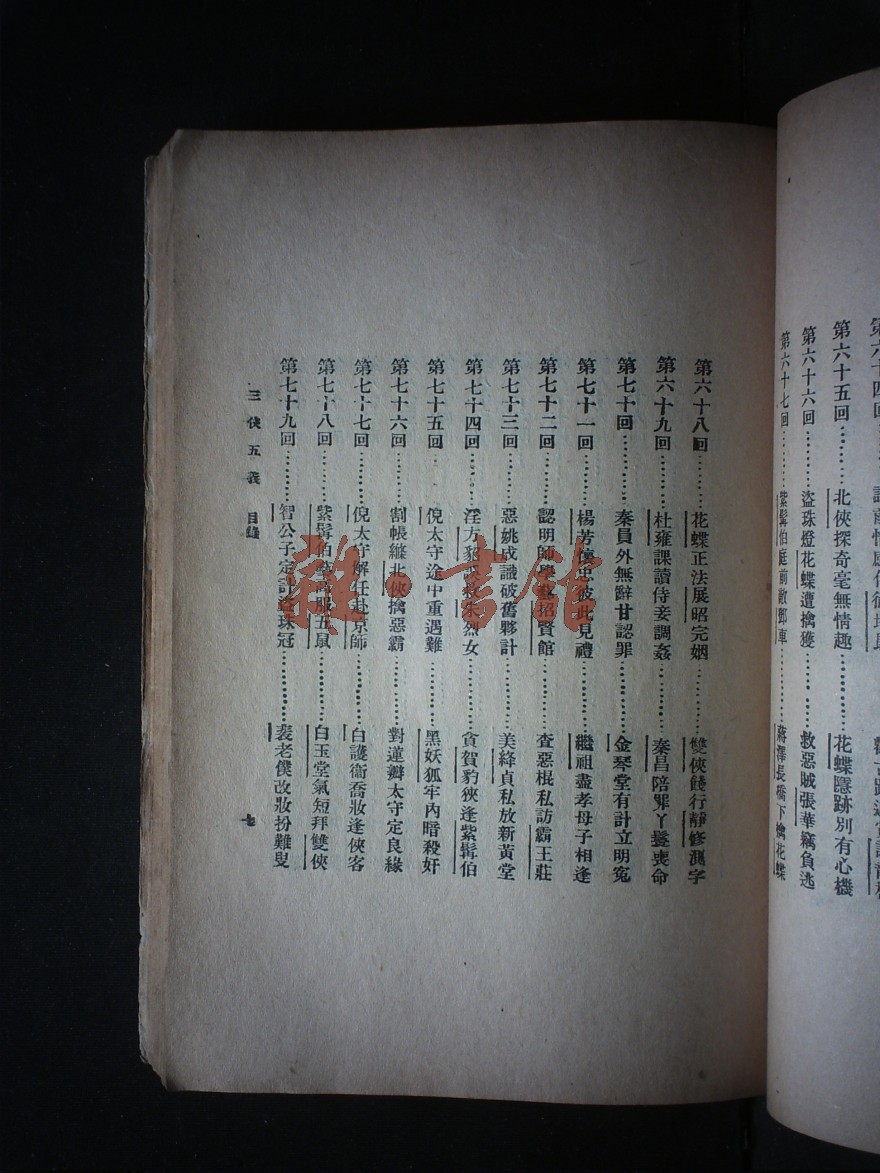 回
第六十五回………北俠探奇毫無情趣………花蝶隱跡別有心機
第六十六回………盜珠燈花蝶遭擒獲………救惡賊張華竊負逃
第六十七回………紫髯伯庭前敵鄧車………蔣澤長橋下擒花蝶
第六十八回………花蝶正法展昭完姻………雙俠餞行靜修測字
第六十九回………杜雍課讀侍妾調姦………秦昌陪罪丫鬟喪命
第七十回………秦員外無辭甘認罪………金琴堂有計立明冤
第七十一回………楊芳懷忠彼此見禮………繼祖盡孝母子相逢
第七十二回………認明師學藝招賢館………查惡棍私訪霸王莊
第七十三回………惡姚成識破舊夥計………美絳貞私放新黃堂
第七十四回………淫方貂誤救朱烈女………貪賀豹狹逢紫髯伯
第七十五回………倪太守途中重遇難………黑妖狐牢內暗殺奸
第七十六回………割帳縧北俠擒惡霸………對蓮瓣太守定良緣
第七十七回………倪太守解任赴京師………白護衞喬妝逢俠客
第七十八回………紫髯伯藝高服五鼠………白玉堂氣短拜雙俠
第七十九回………智公子定計盜珠冠………裴老僕改妝扮難叟
三俠五義 目錄 七